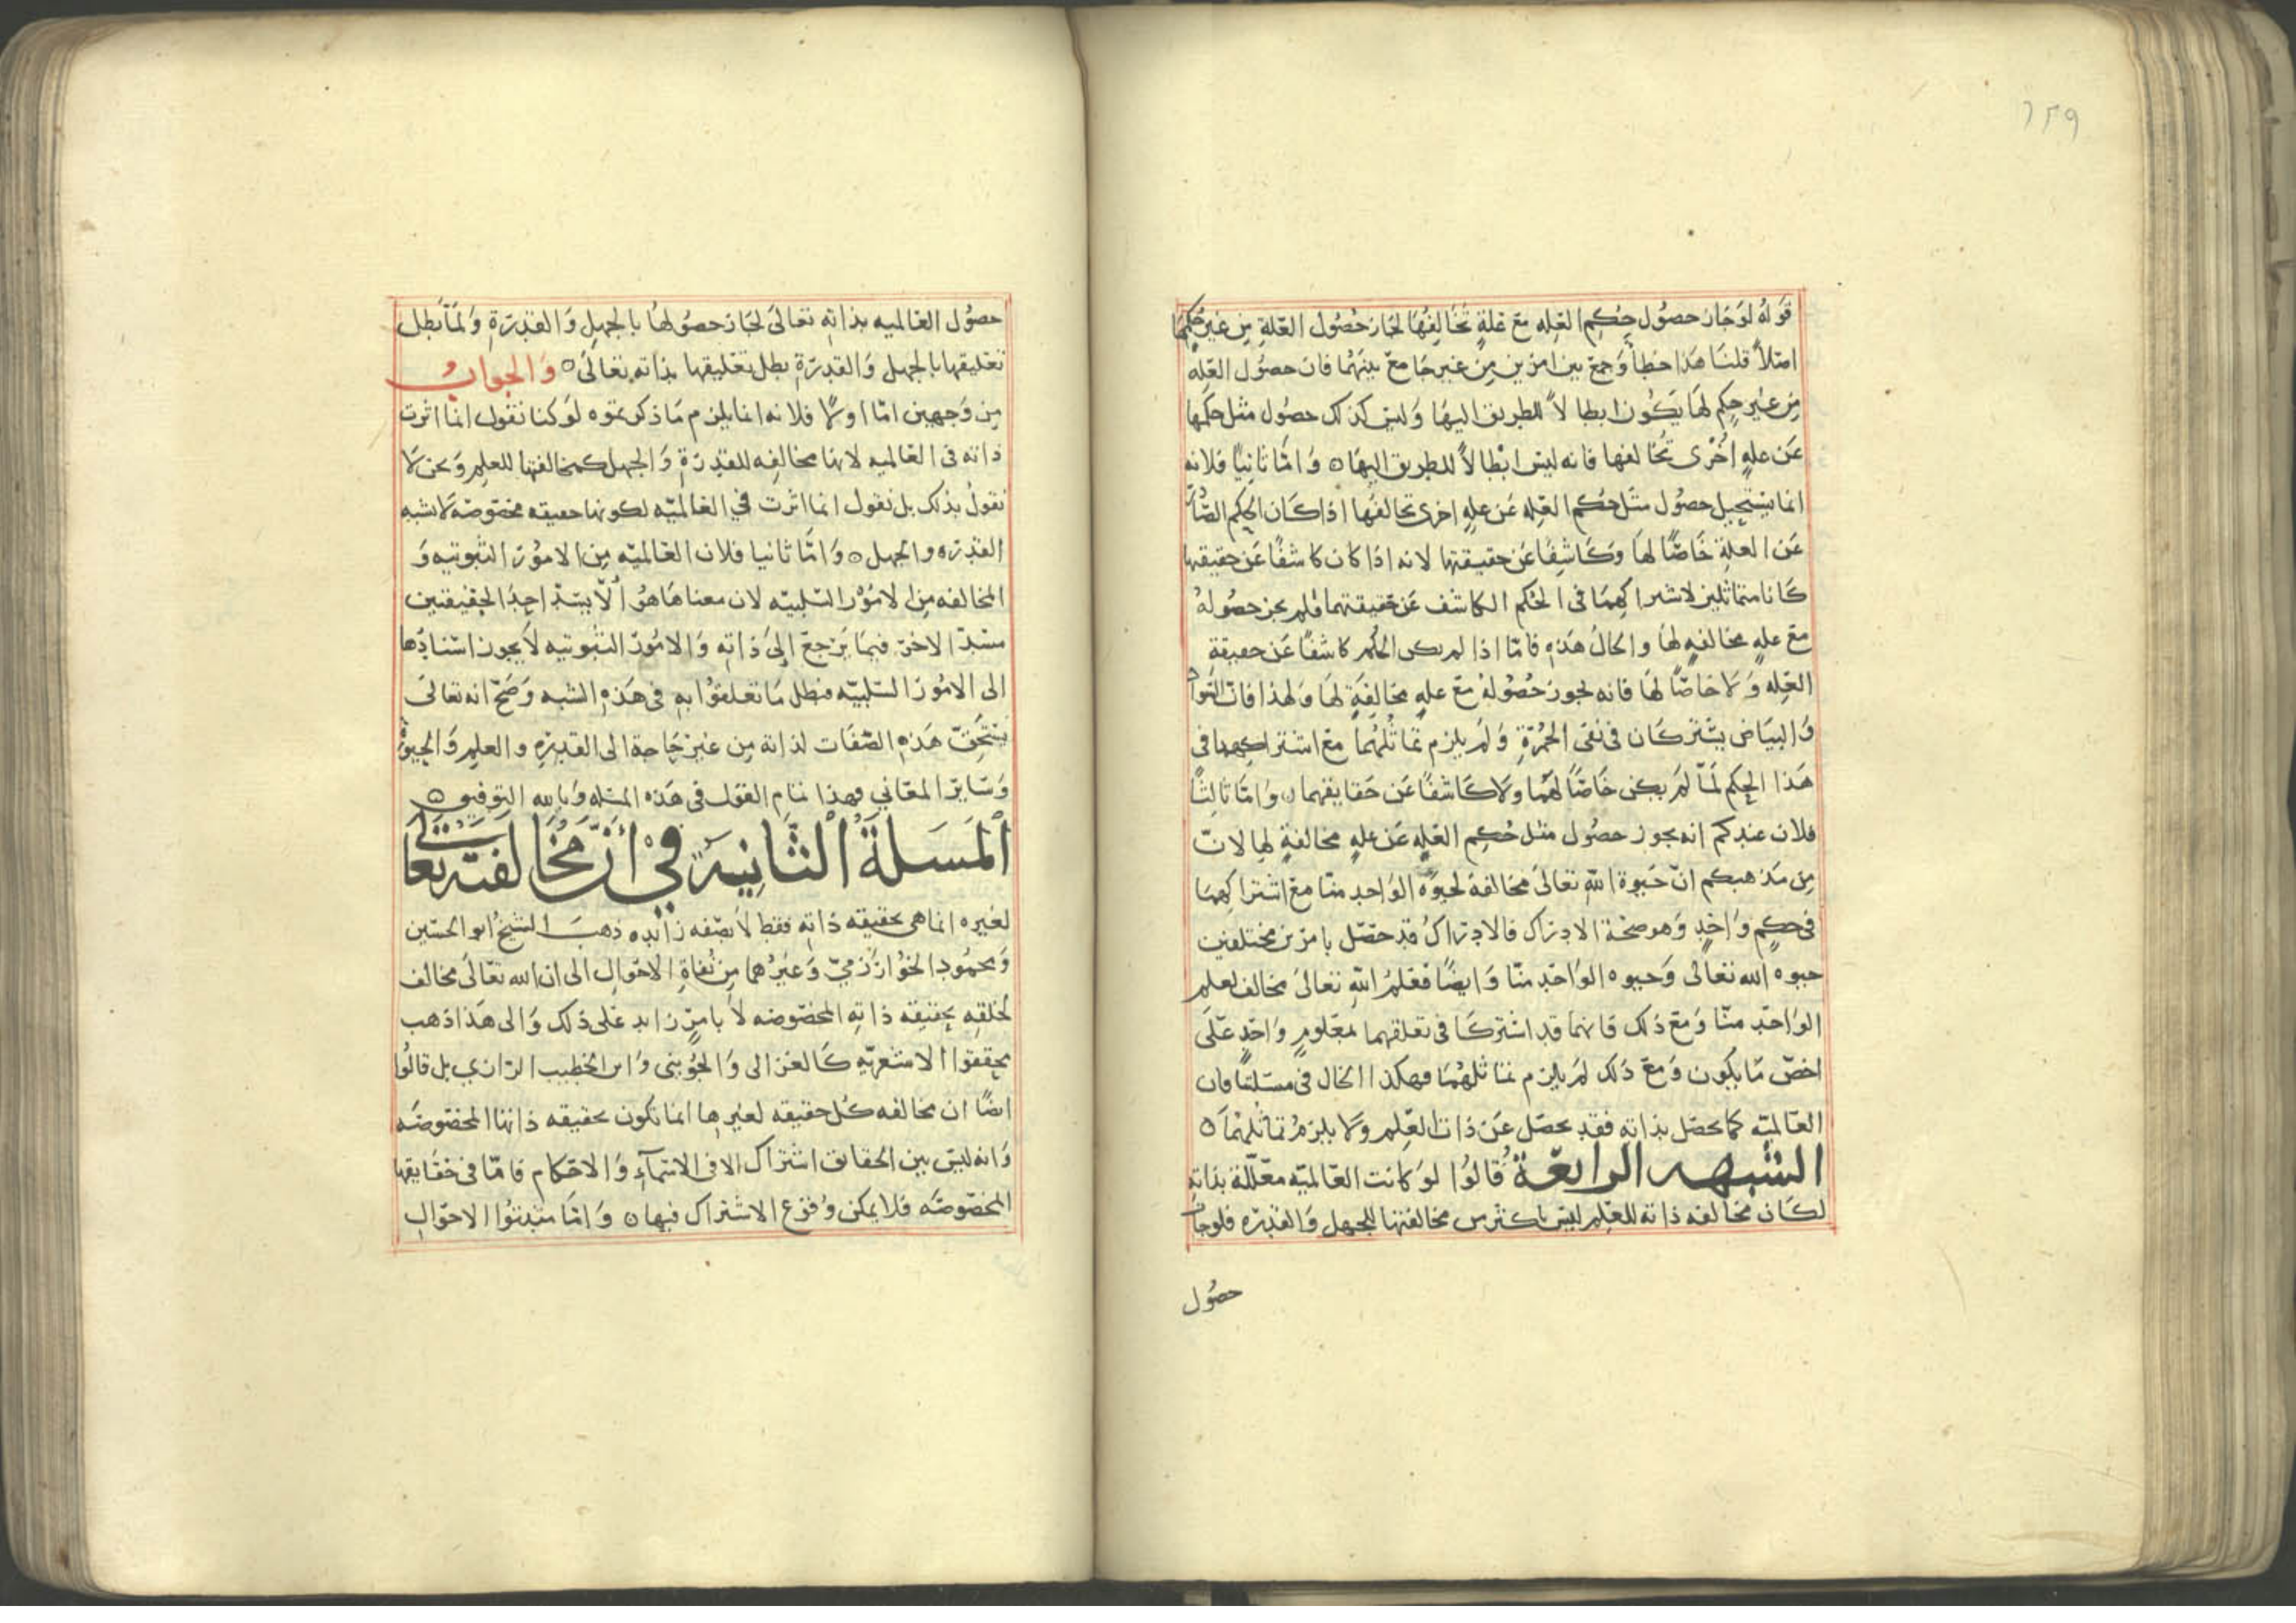 ١٢٩
قوله لو جاز حصول حكم العله مع علة تخالفها لجاز حصول العلة من غير حكمها
اصلا قلنا هذا خطأ وجمع بين امرين من غير جامع بينهما فان حصول العله
من غير حكم لها يكون ابطالا للطريق اليها وليس كذلك حصول مثل حكمها
عن علهٍ اخرى تخالفها فانه ليس ابطالاً للطريق اليها ه واما ثانيًا فلانه
انما يستحيل حصول مثل حكم العله عن علهٍ اخرى تخالفها اذا كان الحكم الصادر
عن العلة خاصًّا لها وكاشفًا عن حقيقتها لانه اذا كان كاشفًا عن حقيقتها
كانا متماثلين لاشتراكهما في الحكم الكاشف عن حقيقتهما فلم يجز حصوله
مع علهٍ مخالفهٍ لها والحال هذه فامّا اذا لم يكن الحكم كاشفًا عن حقيقة
العله ولا خاصًّا لها فانه يجوز حصوله مع علهٍ مخالفةٍ لها ولهذا فان السواد
والبياض يشتركان في نفي الحمرة ولم يلزم تماثلهما مع اشتراكهما في
هذا الحكم لمّا لم يكن خاصًّا لهما ولا كاشفًا عن حقايقهما ه واما ثالثًا
فلان عندكم انه يجوز حصول مثل حكم العله عن علهٍ مخالفةٍ لها لانّ
من مذهبكم انّ حيوة الله تعالى مخالفة لحيوة الواحد منّا مع اشتراكهما
في حكمٍ واحدٍ وهو صحة الادراك فالادراك قد حصل بامرين مختلفين
حيوه الله تعالى وحيوه الواحد منّا وايضًا فعلم الله تعالى مخالف لعلم
الواحد منّا ومع ذلك فانهما قد اشتركا في تعلقهما بمعلومٍ واحدٍ على
اخصّ ما يكون ومع ذلك لم يلزم تماثلهما فهكذا الحال في مسئلتنا فان
العالميّه كما تحصل بذاته فقد تحصل عن ذات العلم ولا يلزم تماثلهما ه
الشبهه الرابعة قالوا لو كانت العالميّه معلّلة بذاته
لكان مخالفه ذاته للعلم ليس باكثر من مخالفتها للجهل والقدره فلو جاز
حصول
حصول العالميه بذاته تعالى لجاز حصولها بالجهل والقدرة ولمّا بطل
تعليقها بالجهل والقدرة بطل تعليقها بذاته تعالى ه والجواب
من وجهين امّا اولًا فلانه انما يلزم ما ذكرتموه لو كنا نقول انما اثرت
ذاته في العالميه لانها مخالفه للقدرة والجهل كمخالفتها للعلم ونحن لا
نقول بذلك بل نقول انما اثرت في العالميّه لكونها حقيقه مخصوصه لا تشبه
القدره والجهل ه وامّا ثانيا فلان العالميّه من الامور الثبوتيه و
المخالفه من الامور السلبيّه لان معناها هو ألّا يسدّ احد الحقيقتين
مسدّ الاخرى فيما يرجع إلى ذاته والامور الثبوتيه لا يجوز اسنادها
الى الامور السلبيّه فبطل ما تعلقوا به في هذه الشبه وصحّ انه تعالى
يستحق هذه الصفات لذاته من غير حاجة الى القدره والعلم والحيوة
وساير المعاني فهذا تمام القول في هذه المسئله وبالله التوفيق ه
المسلة الثانية في أنّ مخالفته تعالى
لغيره انما هي بحقيقه ذاته فقط لا بصفه زائده ذهب الشيخ ابو الحسين
ومحمود الخوارزميّ وغيرهما من نفاة الاحوال الى ان الله تعالى مخالف
لخلقه بحقيقه ذاته المخصوصه لا بامرٍ زايد على ذلك والى هذا ذهب
محققوا الاشعريّه كالغزالي والجويني وابن الخطيب الرازي بل قالوا
ايضًا ان مخالفه كل حقيقه لغيرها انما تكون بحقيقه ذاتها المخصوصه
وانه ليس بين الحقايق اشتراك الا في الاسمآء والاحكام فامّا في حقايقها
المخصوصه فلا يمكن وقوع الاشتراك فيها ه وامّا مثبتوا الاحوال